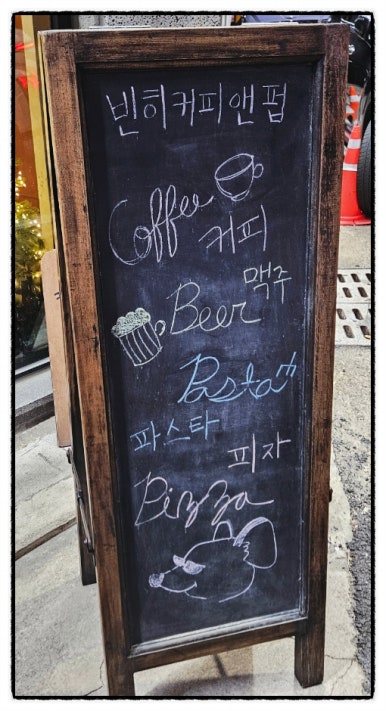 빈히커피앤펍
Coffee
커피
맥주
Beer
Pasta
파스타
피자
Pizza